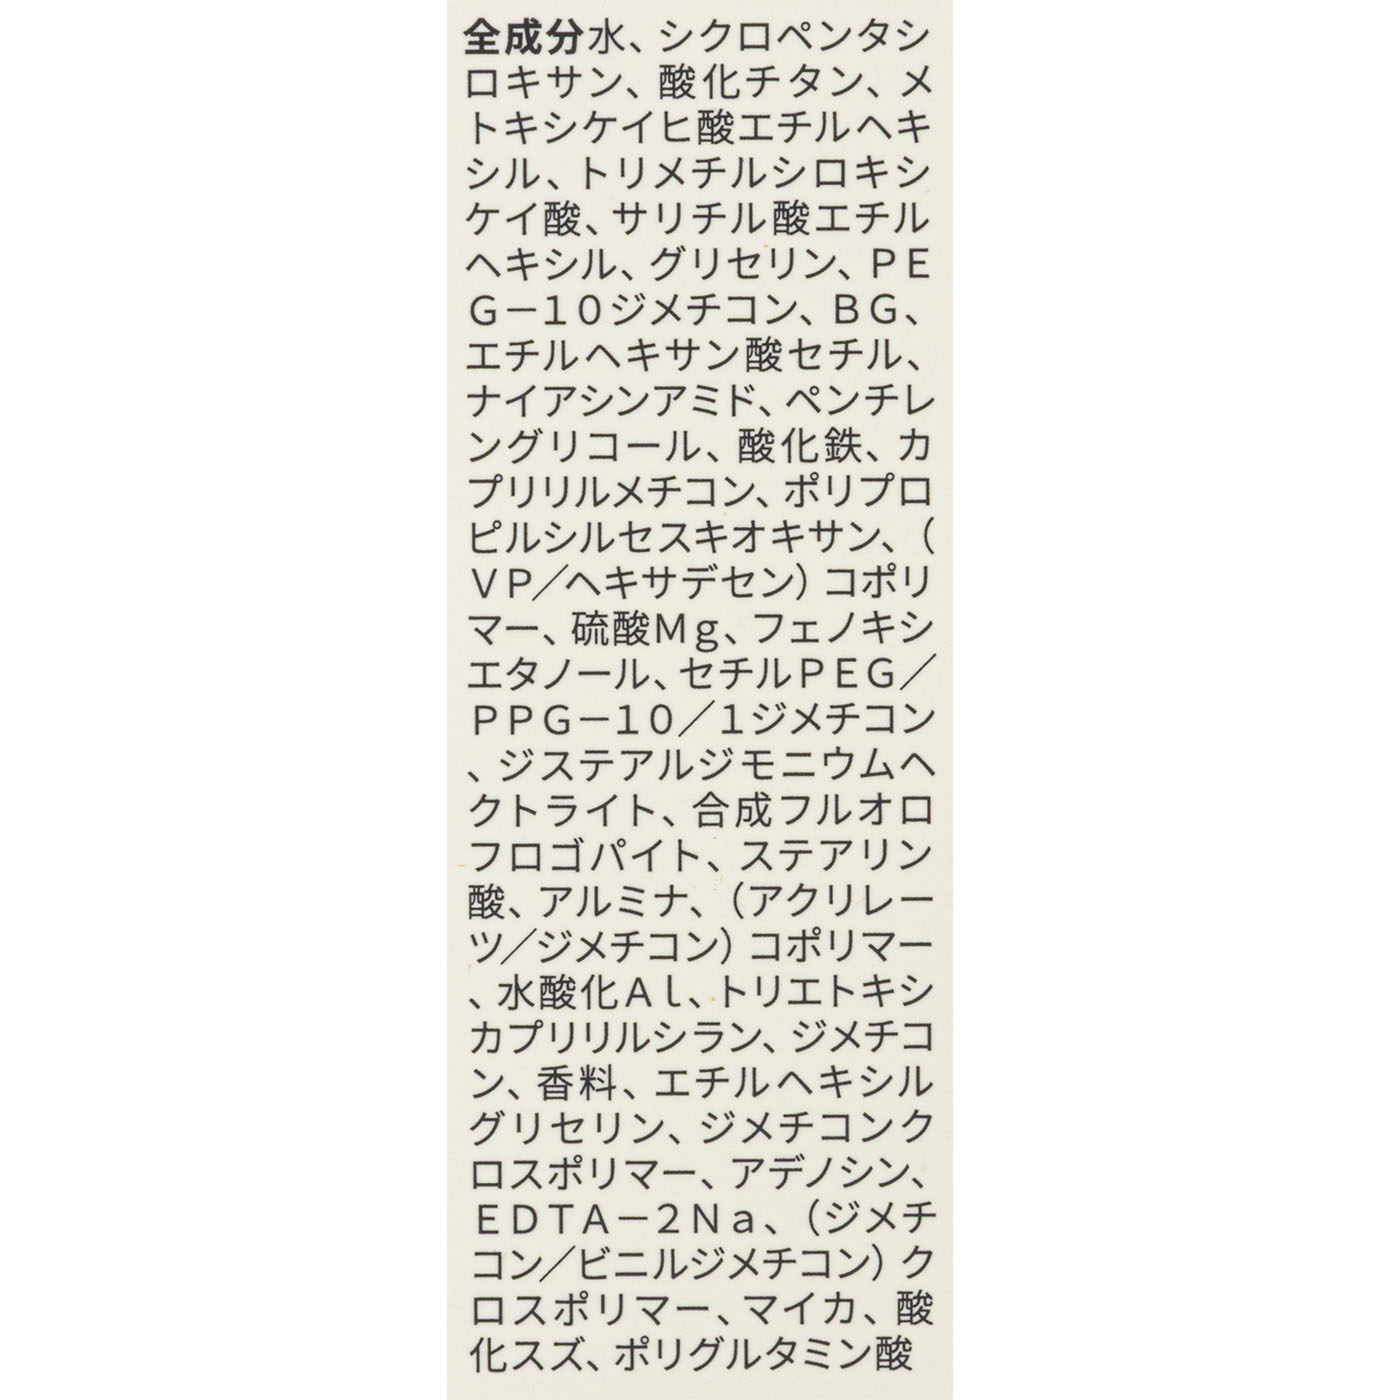 全成分水、シクロペンタシ
ロキサン、酸化チタン、メ
トキシケイヒ酸エチルヘキ
シル、トリメチルシロキシ
ケイ酸、サリチル酸エチル
ヘキシル、グリセリン、ＰＥ
Ｇ－１０ジメチコン、ＢＧ、
エチルヘキサン酸セチル、
ナイアシンアミド、ペンチレ
ングリコール、酸化鉄、カ
プリリルメチコン、ポリプロ
ピルシルセスキオキサン、（
ＶＰ／ヘキサデセン）コポリ
マー、硫酸Ｍｇ、フェノキシ
エタノール、セチルＰＥＧ／
ＰＰＧ－１０／１ジメチコン
、ジステアルジモニウムヘ
クトライト、合成フルオロ
フロゴパイト、ステアリン
酸、アルミナ、（アクリレー
ツ／ジメチコン）コポリマー
、水酸化Ａｌ、トリエトキシ
カプリリルシラン、ジメチコ
ン、香料、エチルヘキシル
グリセリン、ジメチコンク
ロスポリマー、アデノシン、
ＥＤＴＡ－２Ｎａ、（ジメチ
コン／ビニルジメチコン）ク
ロスポリマー、マイカ、酸
化スズ、ポリグルタミン酸